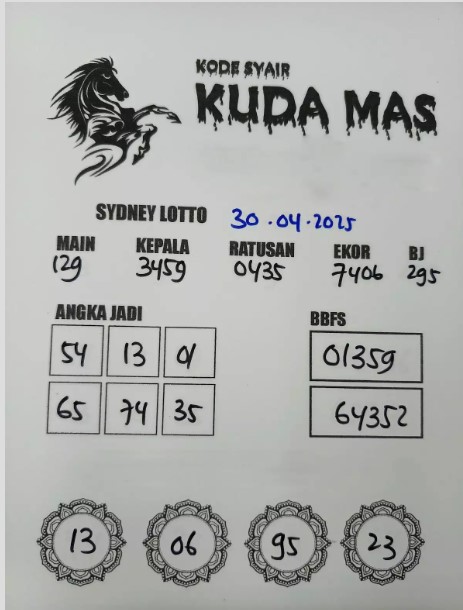 KODE SYAIR
KUDA MAS
SYDNEY LOTTO 30.04.2025
MAIN KEPALA RATUSAN EKOR BJ
129 3459 0435 7406 295
ANGKA JADI BBFS
54 13 01 01359
65 74 35 64352
13 06 95 23